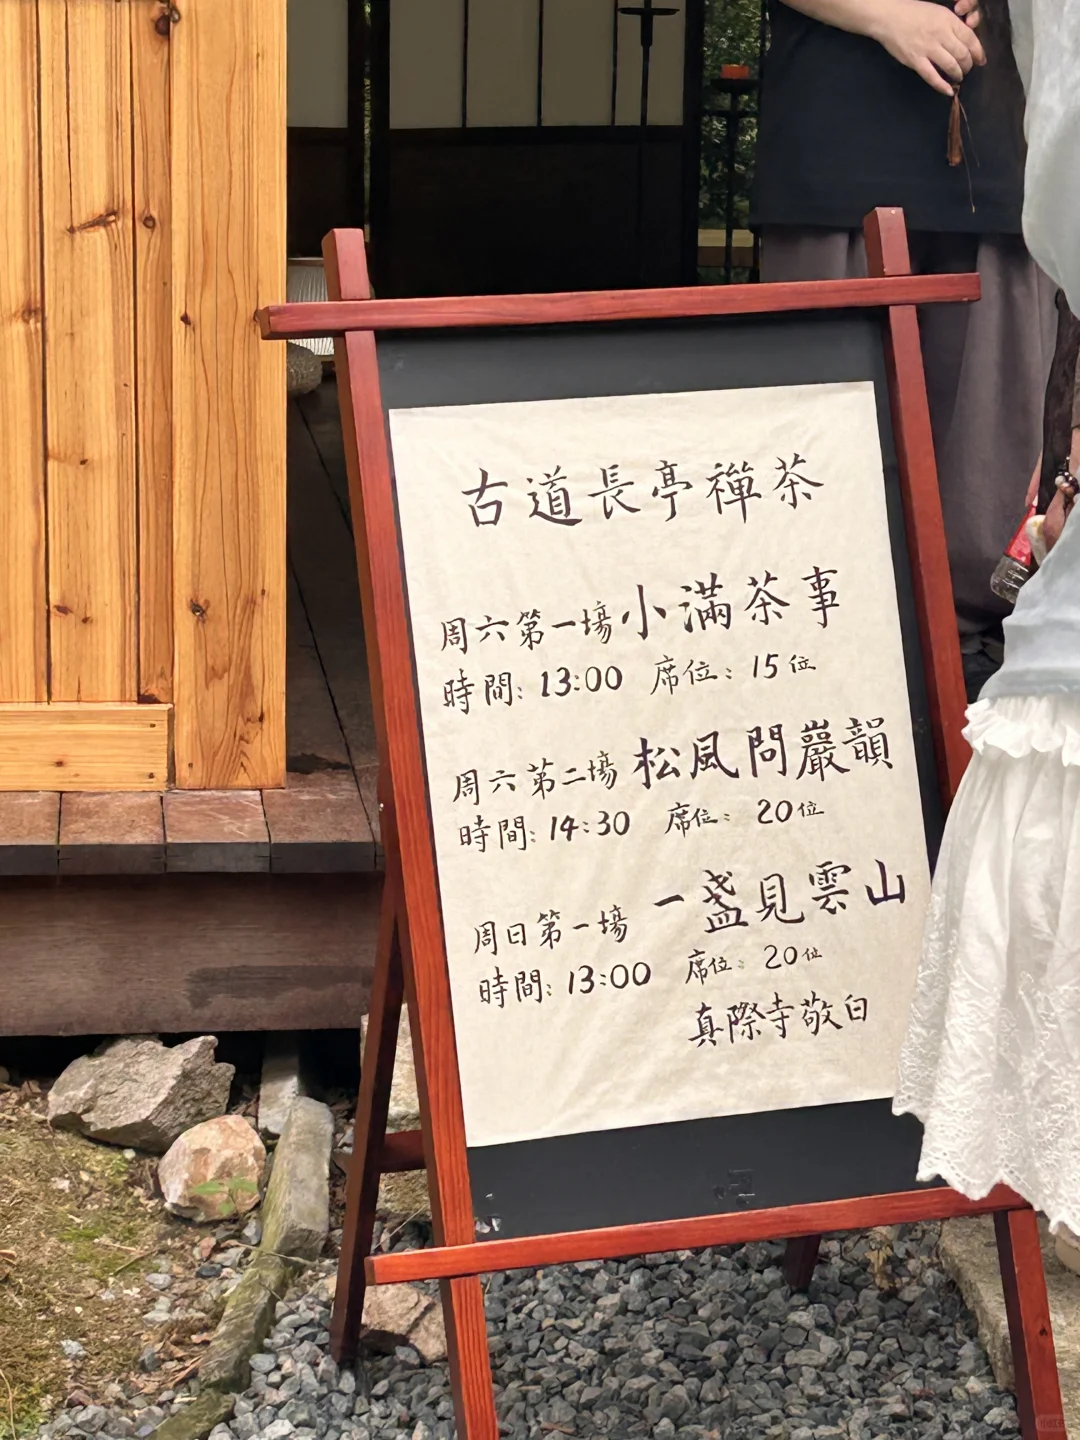 古道長亭禪茶
周六第一場小滿茶事
時間:13:00 席位:15位
周六第二場 松風問巖韻
時間:14:30 席位:20位
周日第一場 一盞見雲山
時間:13:00 席位:20位
真際寺敬白